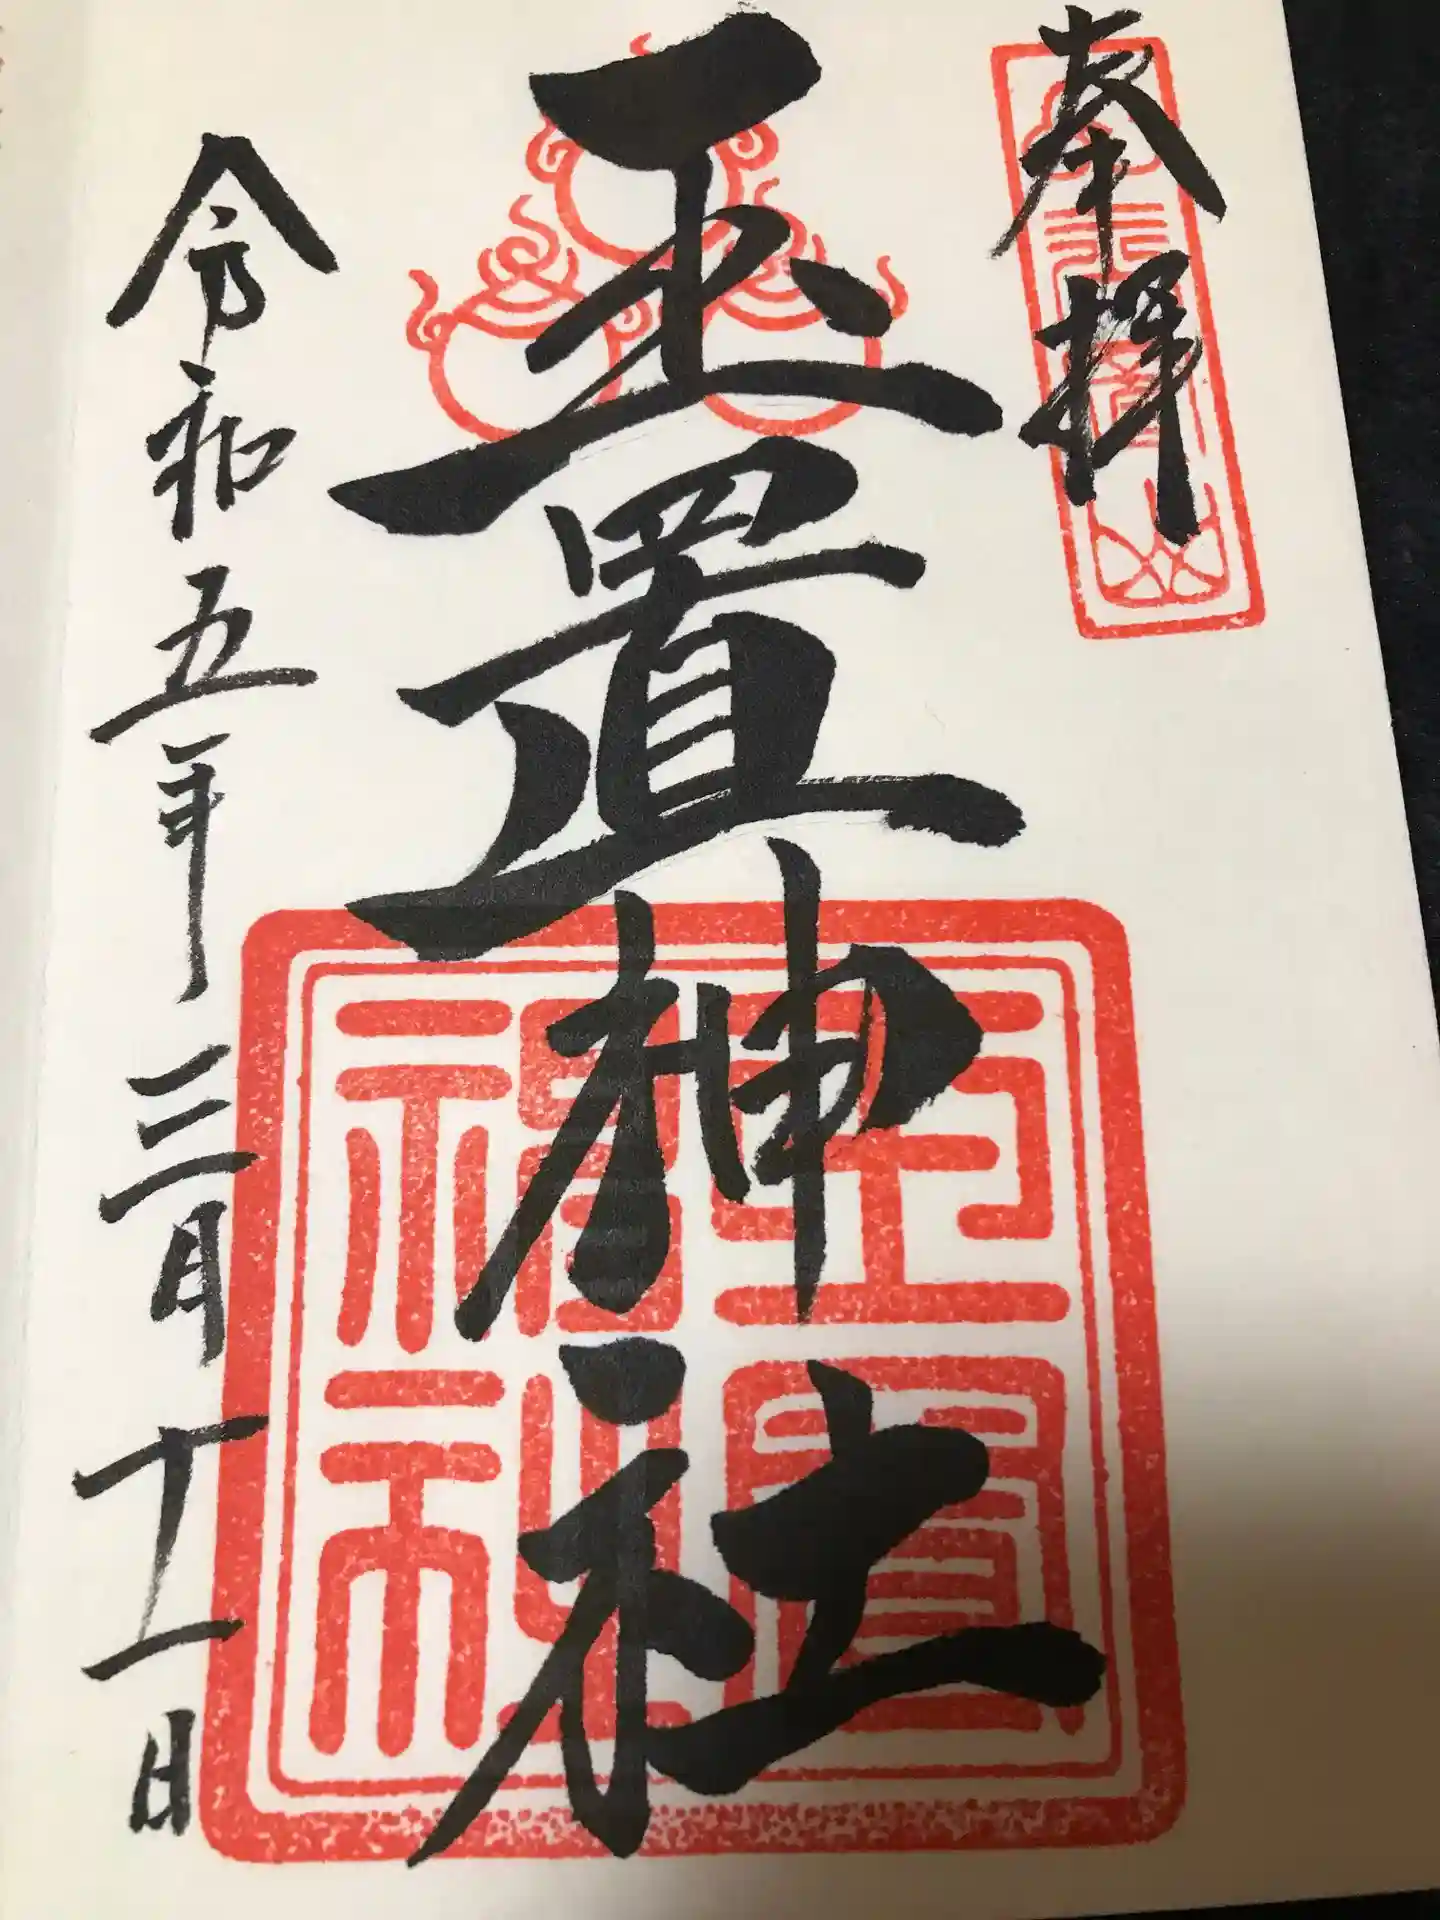 奉拝
玉置神社
令和五年三月十一日
玉置神社